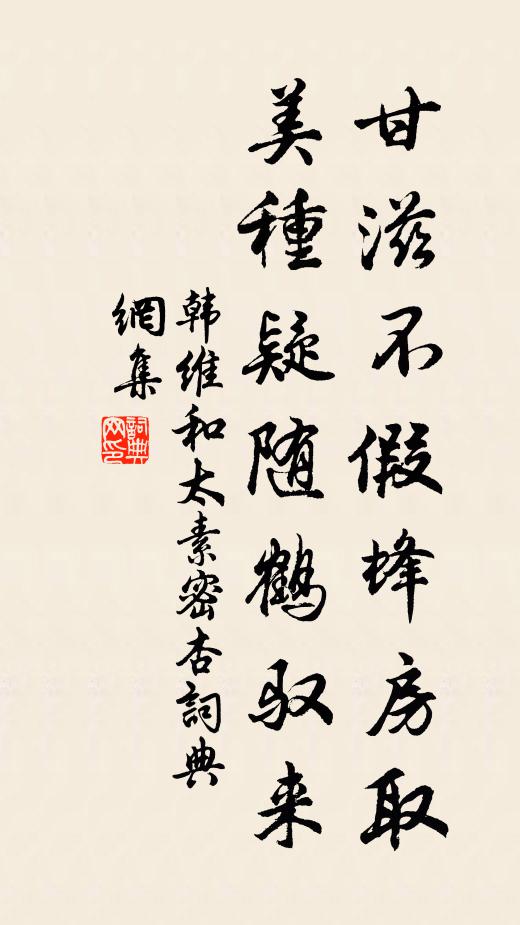 甘滋不假蜂房取
美種疑随鹤驭来
韩维和太素密杏詞典
網集
詞典网印